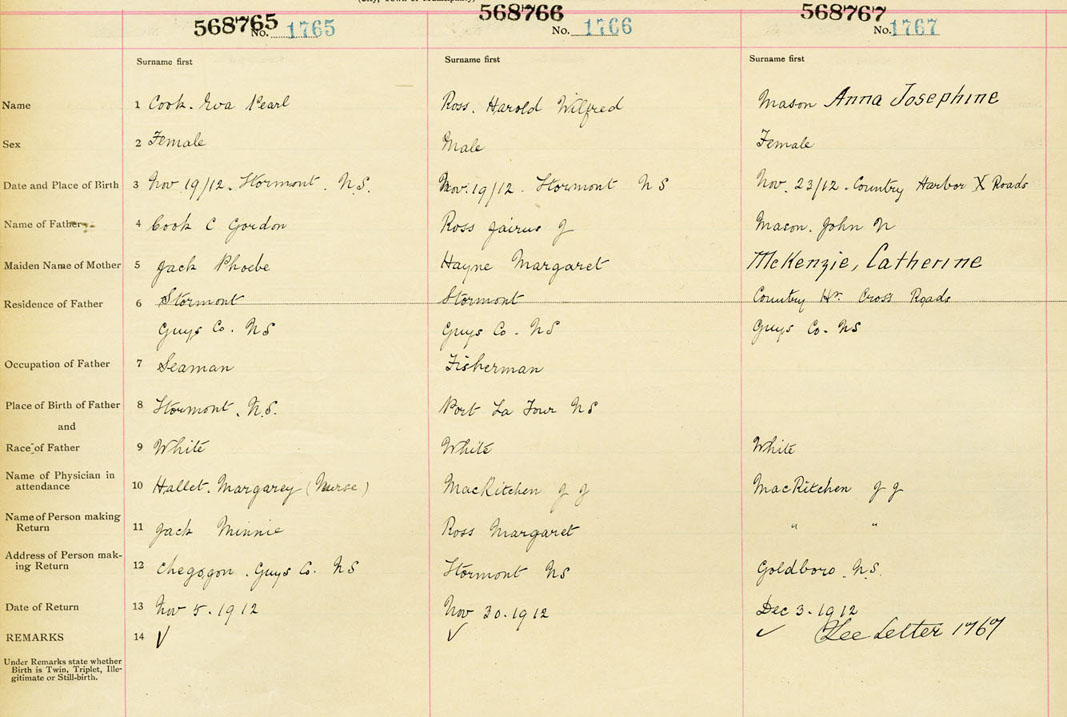 568765 568766 568767
No. 1765 No. 1766 No. 1767
Surname first Surname first Surname first
Name 1 Cook. Eva Pearl Ross. Harold Wilfred Mason Anna Josephine
Sex 2 Female Male Female
Date and Place of Birth 3 Nov 19/12. Stormont. N.S. Nov. 19/12. Stormont N S Nov. 23/12. Country Harbor X Roads
Name of Father 4 Cook C Gordon Ross Jairus J Mason. John N
Maiden Name of Mother 5 Jack Phoebe Hayne Margaret McKenzie, Catherine
Residence of Father 6 Stormont Stormont Country Hr. Cross Roads
Guys Co. NS Guys Co. NS Guys Co. NS
Occupation of Father 7 Seaman Fisherman
Place of Birth of Father 8 Stormont. N.S. Port La Tour NS
and
Race of Father 9 White White White
Name of Physician in
attendance 10 Hallet. Margarey (Nurse) MacKitchen J J MacKitchen J J
Name of Person making
Return 11 Jack Minnie Ross Margaret " "
Address of Person mak-
ing Return 12 Guys Co. NS Stormont NS Goldboro. N.S.
Date of Return 13 Nov 5. 1912 Nov 30. 1912 Dec 3. 1912
REMARKS 14 ✓ ✓ ✓ See Letter 1767
Under Remarks state whether
Birth is Twin, Triplet, Ille-
gitimate or Still-birth.